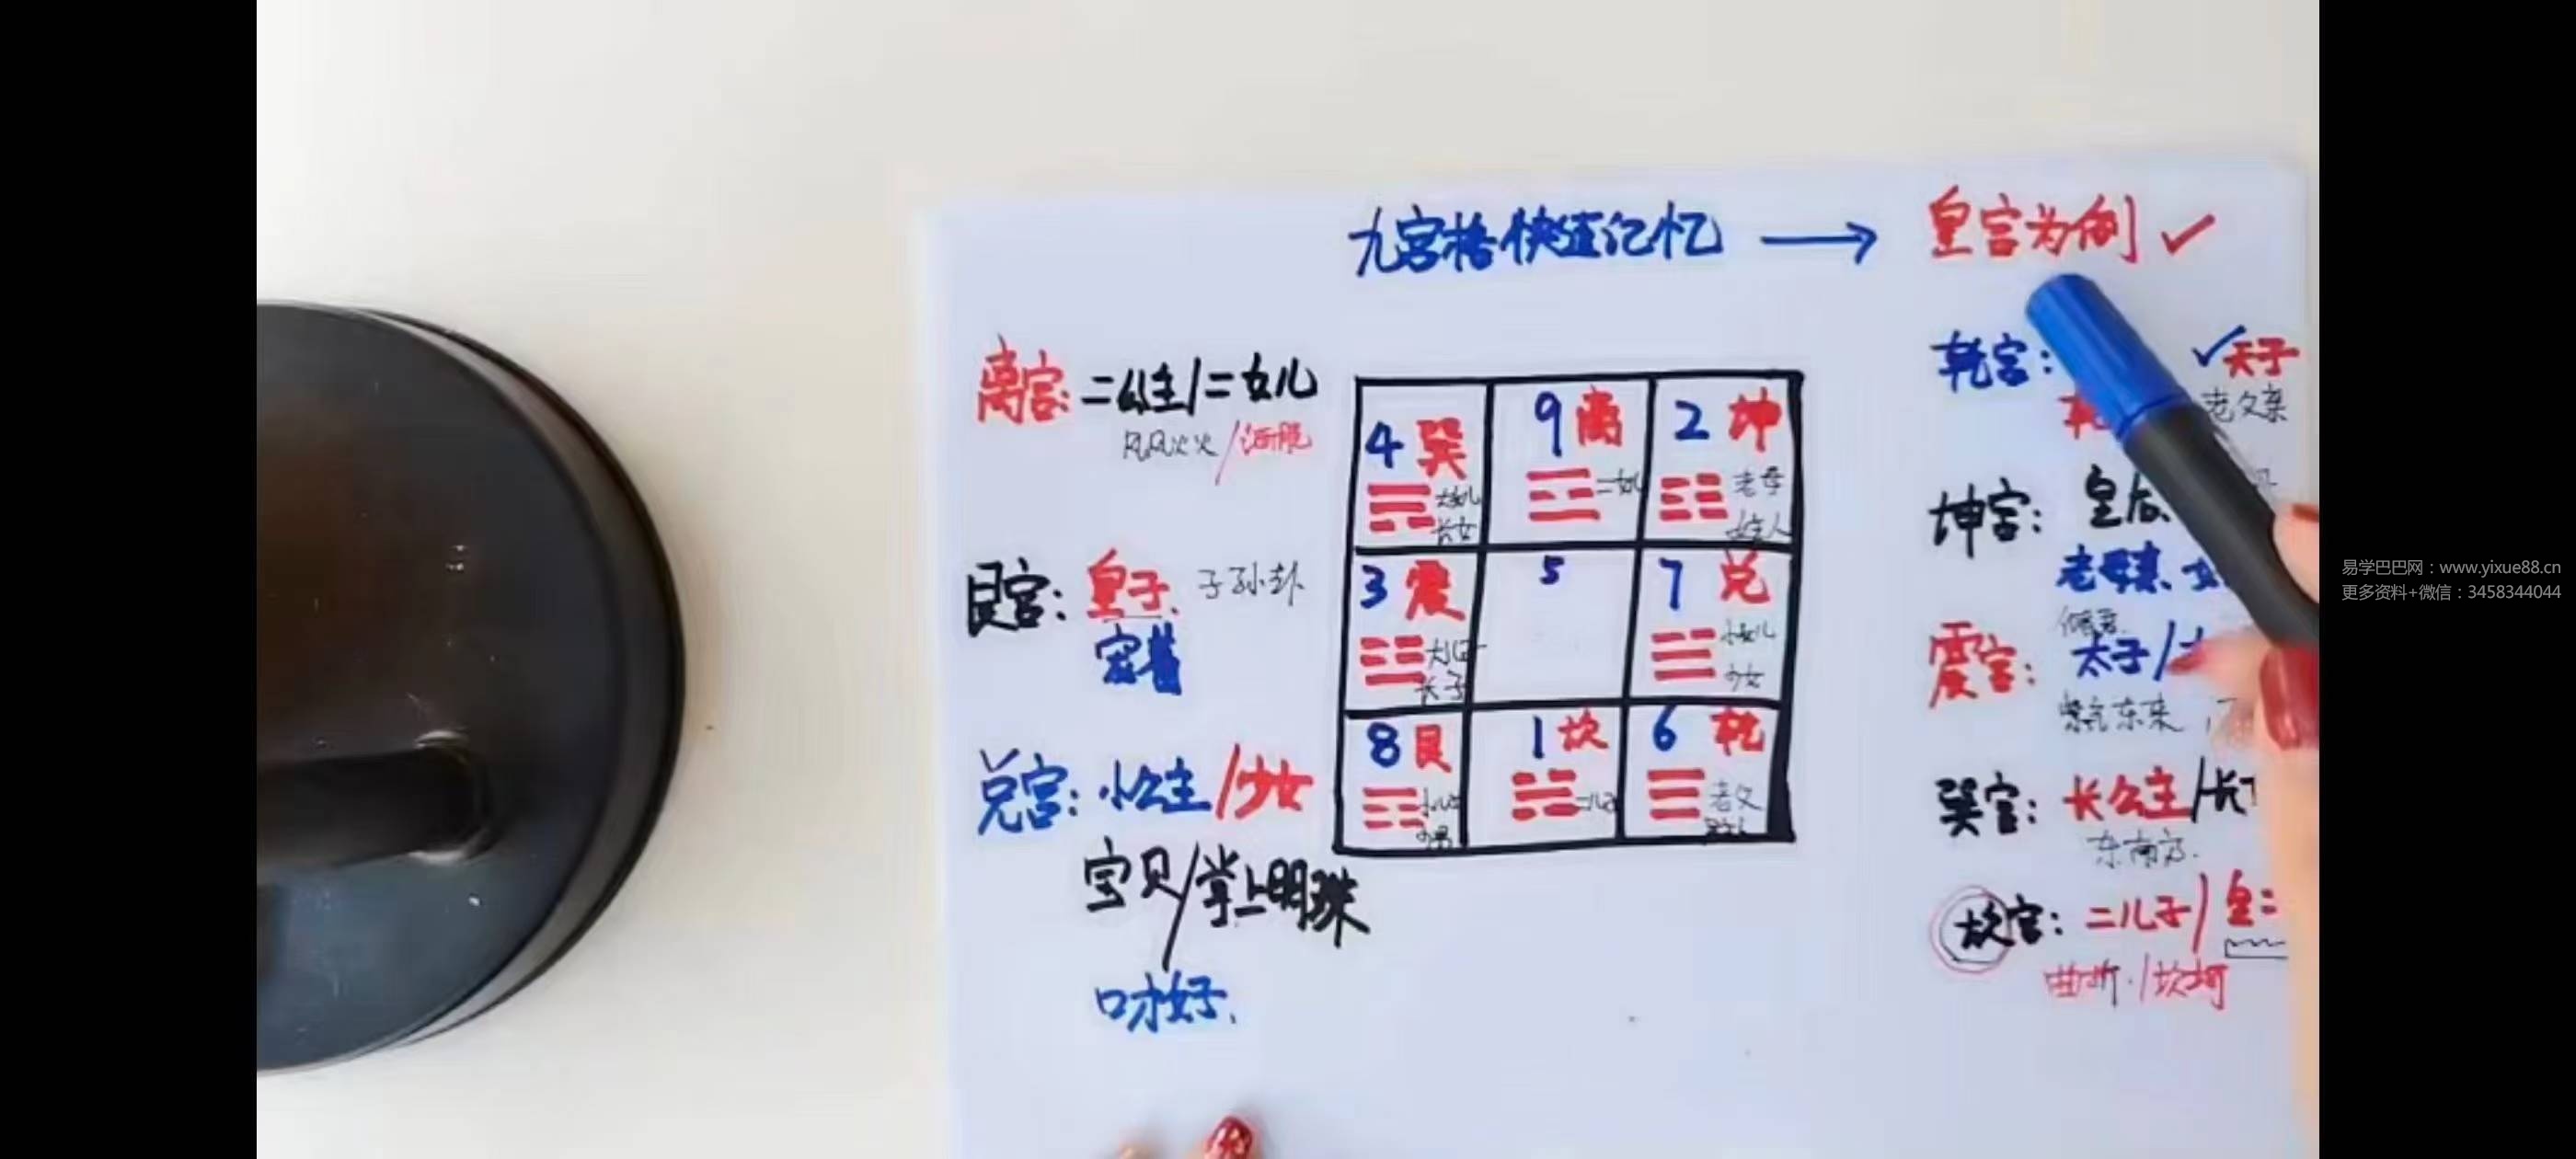 九宫格快速记忆 → 皇宫为例 ✓
离宫: 二公主/二女儿
风风火火/洒脱
艮宫: 皇子、 子孙卦
宠着
兑宫: 小公主/少女
宝贝/掌上明珠
口才好、
4 巽
大女儿
长女
9 离
二女儿
2 坤
老母
女主人
3 震
大儿子
长子
5
7 兑
小女儿
少女
8 艮
小儿子
少男
1 坎
二儿子
6 乾
老父
乾宫: ✓天子
老父亲
坤宫: 皇后、
老母亲、女
震宫: 太子/
紫气东来
巽宫: 长公主/长
东南方.
坎宫: 二儿子/皇二
曲折·/坎坷
易学巴巴网：www.yixue88.cn
更多资料+微信：3458344044